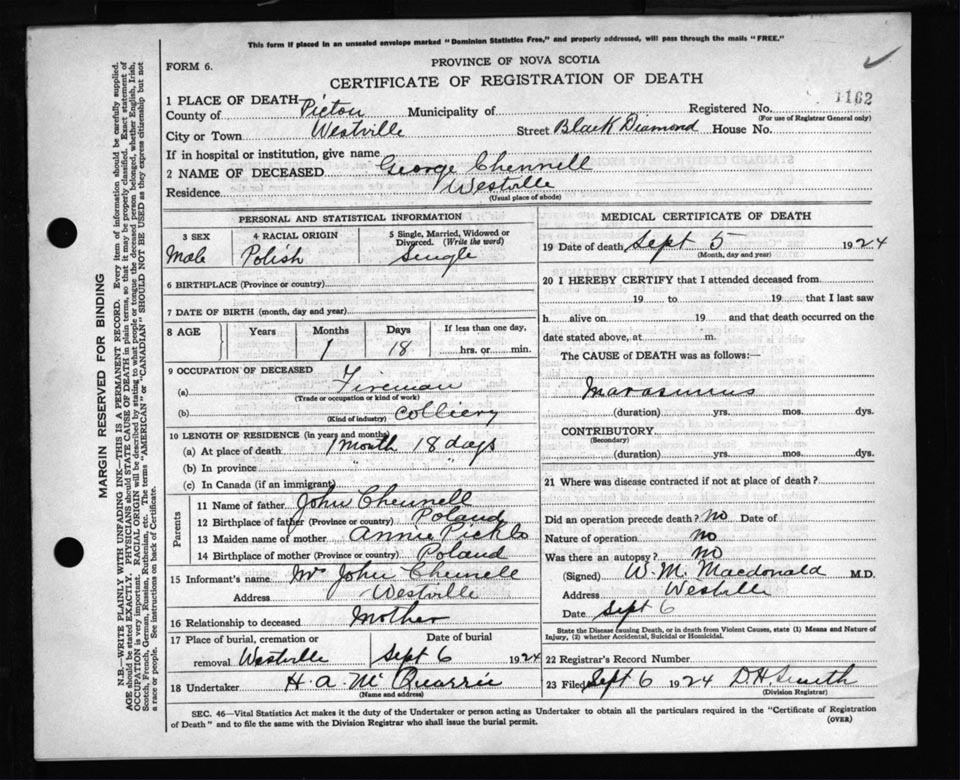 This form if placed in an unsealed envelope marked "Dominion Statistics Free," and properly addressed, will pass through the mails "FREE."
FORM 6.
PROVINCE OF NOVA SCOTIA
CERTIFICATE OF REGISTRATION OF DEATH
1162
1 PLACE OF DEATH—
County of Pictou Municipality of Registered No.
(For use of Registrar General only)
City or Town Westville Street Black Diamond House No.
If in hospital or institution, give name
2 NAME OF DECEASED George Chennell
Residence Westville
(Usual place of abode)
PERSONAL AND STATISTICAL INFORMATION
3 SEX
Male
4 RACIAL ORIGIN
Polish
5 Single, Married, Widowed or
Divorced. (Write the word)
Single
6 BIRTHPLACE (Province or country)
7 DATE OF BIRTH (month, day and year)
8 AGE
Years Months Days If less than one day,
1 18 hrs. or min.
9 OCCUPATION OF DECEASED
(a) Fireman
(Trade or occupation or kind of work)
(b) Colliery
(Kind of industry)
10 LENGTH OF RESIDENCE (in years and months)
(a) At place of death 1 month 18 days
(b) In province " " "
(c) In Canada (if an immigrant)
Parents
11 Name of father John Chennell
12 Birthplace of father (Province or country) Poland
13 Maiden name of mother Annie
14 Birthplace of mother (Province or country) Poland
15 Informant's name Mrs John Chennell
Address Westville
16 Relationship to deceased Mother
17 Place of burial, cremation or Date of burial
removal Westville Sept 6 1924
18 Undertaker H. A. McQuarrie
(Name and address)
MEDICAL CERTIFICATE OF DEATH
19 Date of death Sept 5 1924
(Month, day and year)
20 I HEREBY CERTIFY that I attended deceased from
19 to 19 that I last saw
h alive on 19 and that death occurred on the
date stated above, at m.
The CAUSE OF DEATH was as follows:
Marasmus
(duration) yrs. mos. dys.
CONTRIBUTORY
(Secondary)
(duration) yrs. mos. dys.
21 Where was disease contracted if not at place of death?
Did an operation precede death? no Date of
Nature of operation no
Was there an autopsy? no
(Signed) W. M. Macdonald M.D.
Address Westville
Date Sept 6
State the Disease causing Death, or in death from Violent Causes, state (1) Means and Nature of
Injury, (2) whether Accidental, Suicidal or Homicidal.
22 Registrar's Record Number
23 Filed Sept 6 1924 D H Smith
(Division Registrar)
SEC. 46—Vital Statistics Act makes it the duty of the Undertaker or person acting as Undertaker to obtain all the particulars required in the "Certificate of Registration
of Death" and to file the same with the Division Registrar who shall issue the burial permit.
(OVER)
MARGIN RESERVED FOR BINDING
N.B.—WRITE PLAINLY WITH UNFADING INK—THIS IS A PERMANENT RECORD. Every item of information should be carefully supplied.
AGE should be stated EXACTLY. PHYSICIANS should STATE CAUSE OF DEATH in plain terms, so that it may be properly classified. Exact statement of
OCCUPATION is very important. RACIAL ORIGIN will be described by stating to what people or tongue the deceased person belonged, whether English, Irish,
Scotch, French, German, Russian, Ruthenian, etc. The terms "AMERICAN" or "CANADIAN" SHOULD NOT BE USED as they express citizenship but not
a race or people. See instructions on back of Certificate.